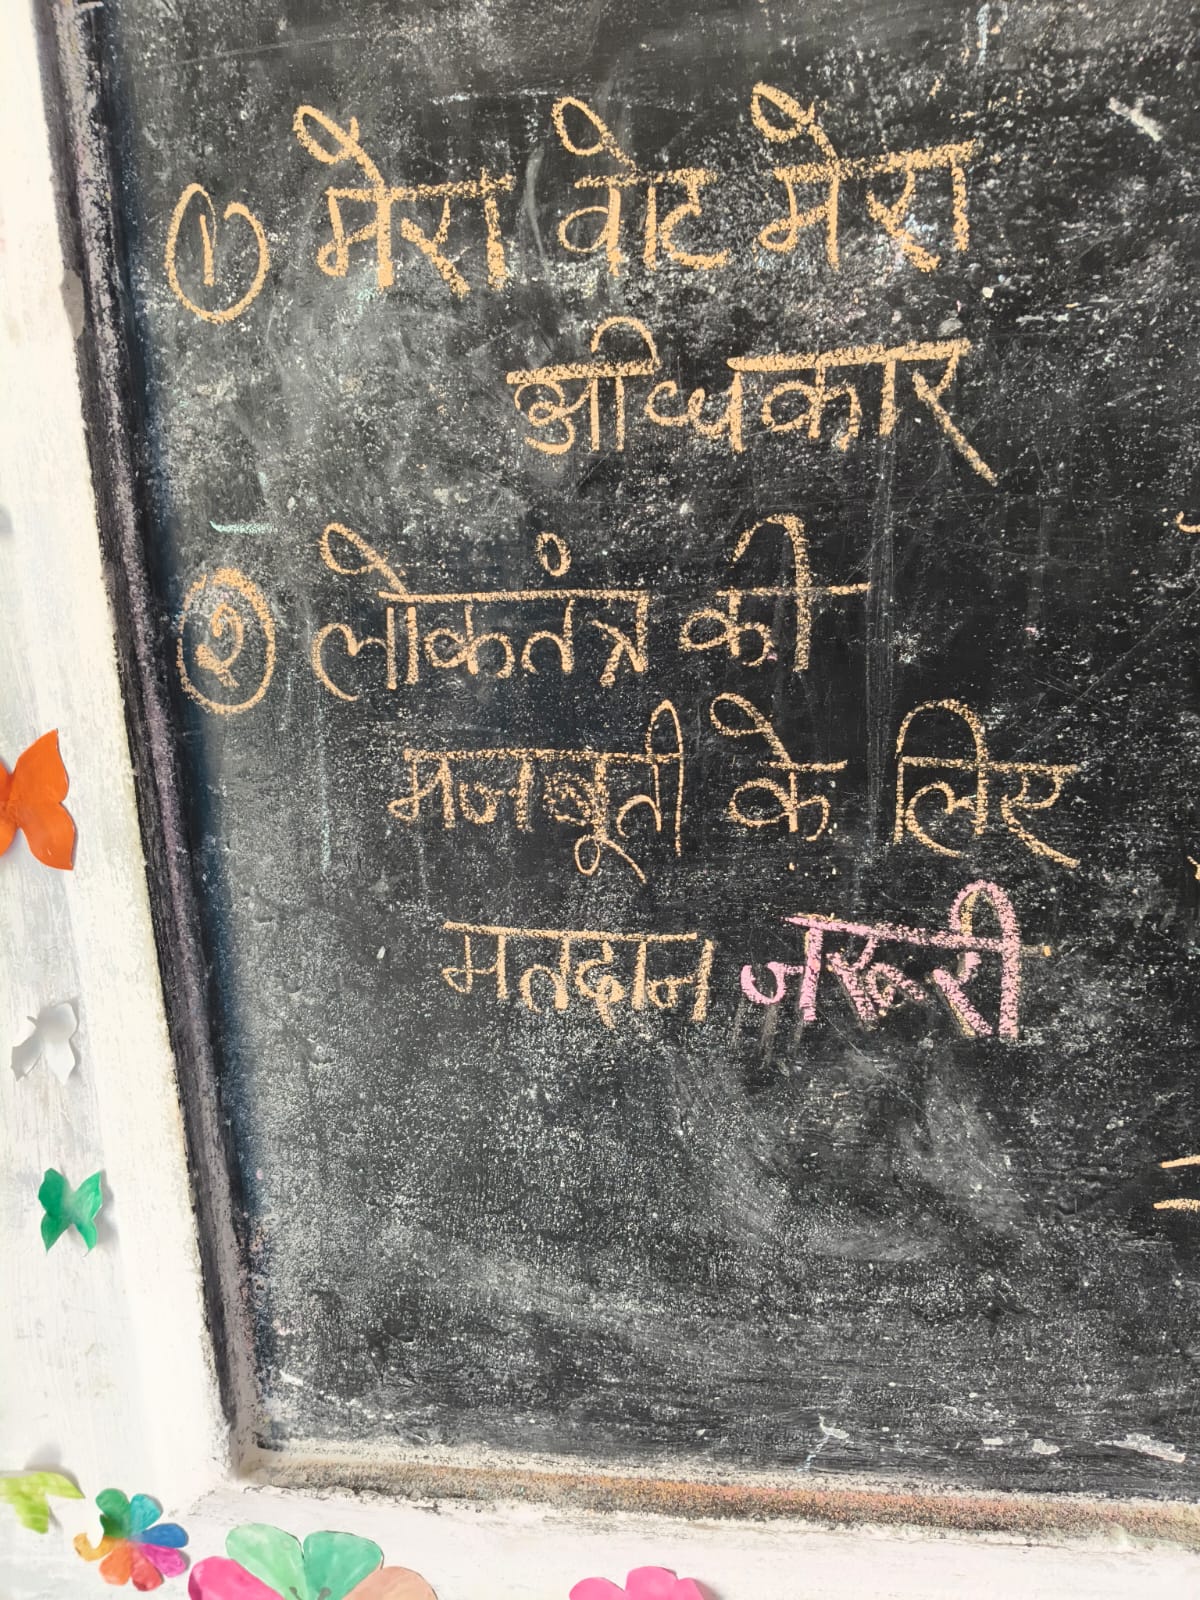 १ मेरा वोट मेरा
अधिकार
२ लोकतंत्र की
मजबूती के लिए
मतदान जरूरी